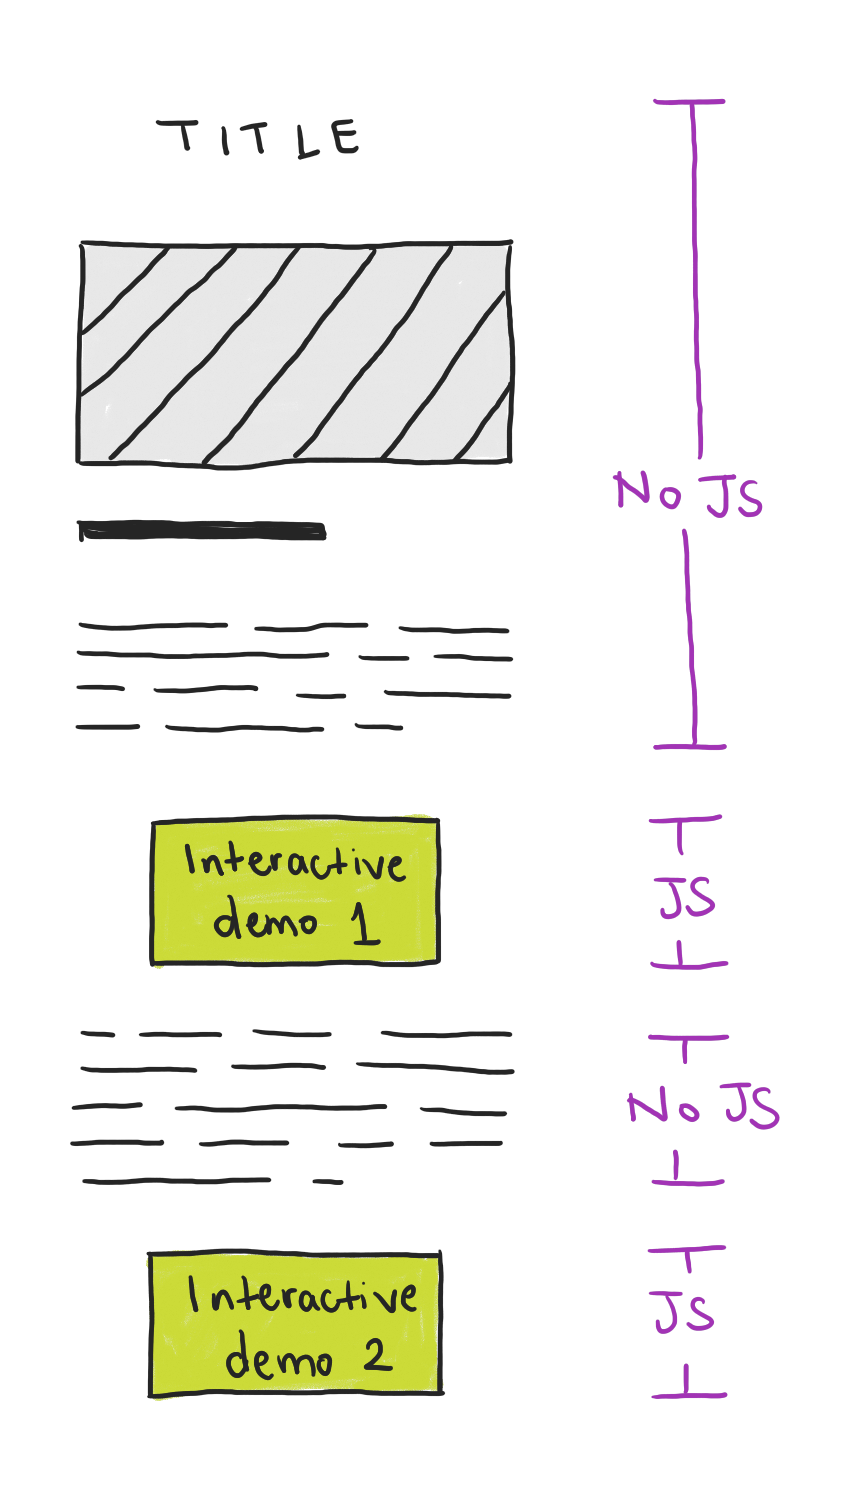 TITLE
No JS
Interactive
demo 1
JS
No JS
Interactive
demo 2
JS